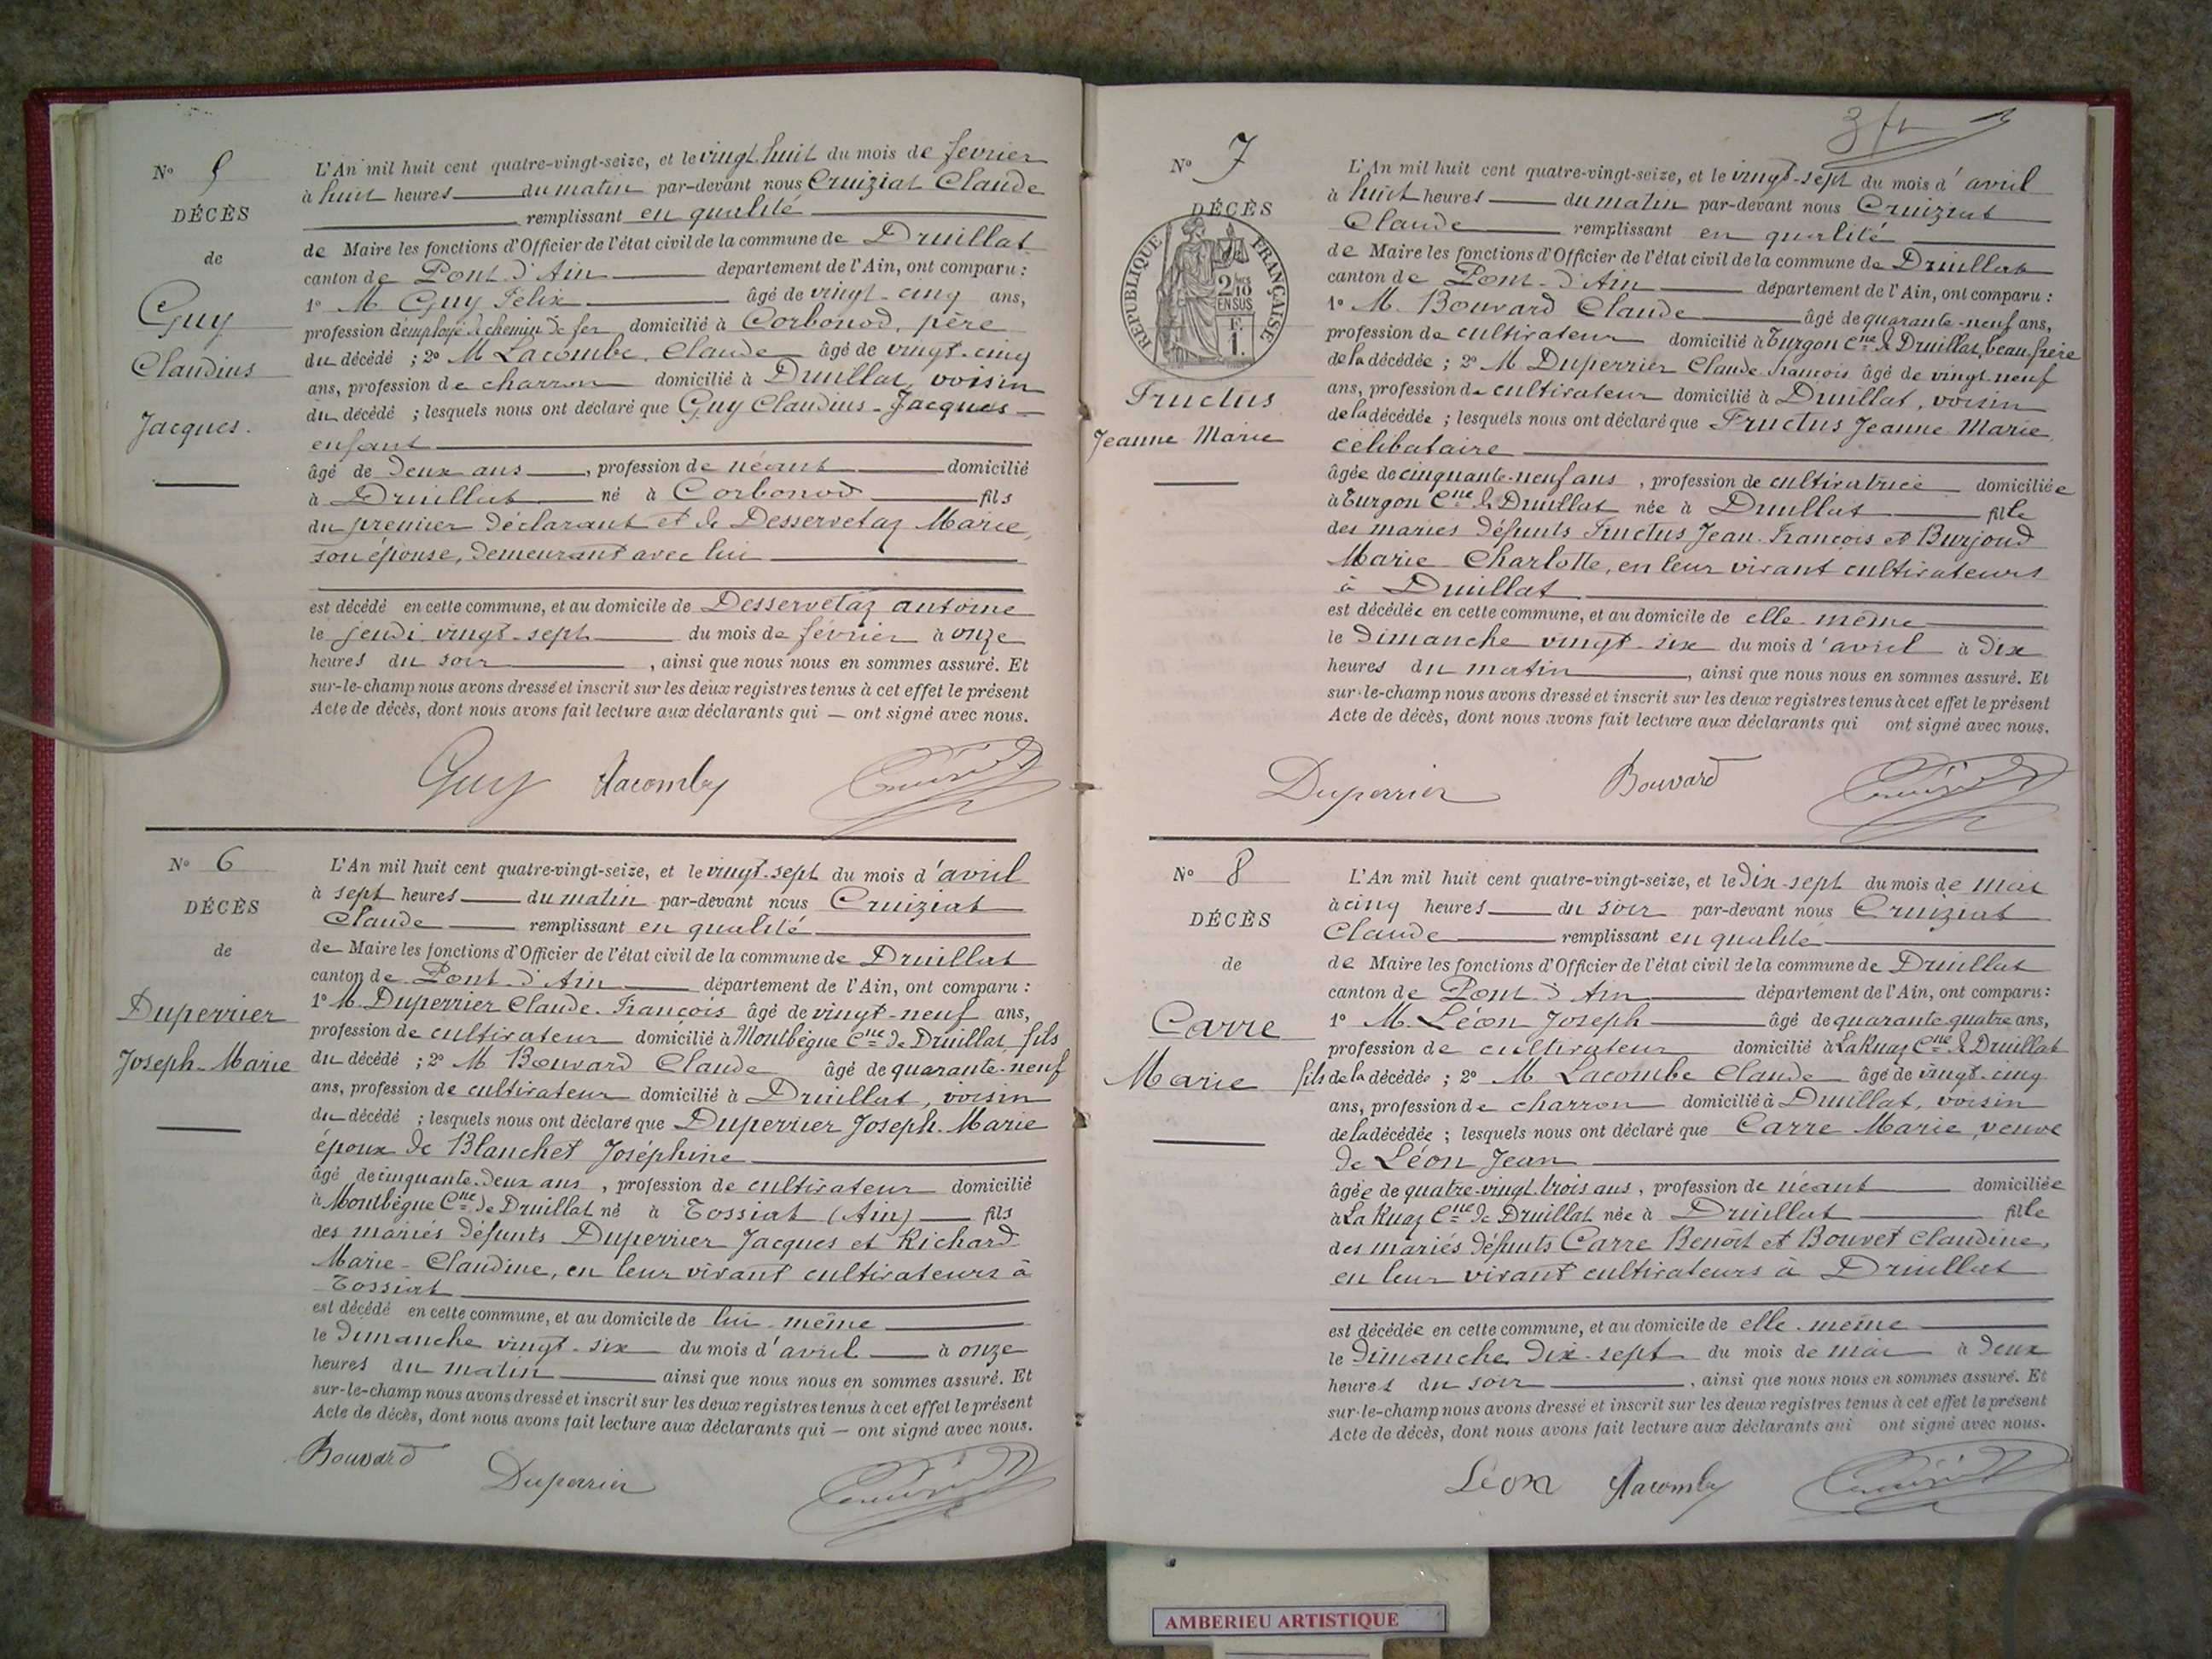 N° 5
DÉCÈS
de
Guy
Claudius
Jacques.
L'An mil huit cent quatre-vingt-seize, et le vingt-huit du mois de février
à huit heures du matin par-devant nous Cruiziat Claude
remplissant en qualité
de Maire les fonctions d'Officier de l'état civil de la commune de Druillat
canton de Pont-d'Ain departement de l'Ain, ont comparu :
1° M. Guy Félix âgé de vingt-cinq ans,
profession d'employé de chemin de fer domicilié à Corbonod, père
du décédé ; 2° M Lacombe, Claude âgé de vingt-cinq
ans, profession de charron domicilié à Druillat, voisin
du décédé ; lesquels nous ont déclaré que Guy Claudius-Jacques
enfant
âgé de deux ans, profession de néant domicilié
à Druillat né à Corbonod fils
du premier déclarant et de Desservetaz Marie,
son épouse, demeurant avec lui
est décédé en cette commune, et au domicile de Desservetaz antoine
le jeudi vingt-sept du mois de février à onze
heures du soir, ainsi que nous nous en sommes assuré. Et
sur-le-champ nous avons dressé et inscrit sur les deux registres tenus à cet effet le présent
Acte de décès, dont nous avons fait lecture aux déclarants qui — ont signé avec nous.
Guy Lacombe Cruiziat
N° 6
DÉCÈS
de
Duperrier
Joseph-Marie
L'An mil huit cent quatre-vingt-seize, et le vingt-sept du mois d'avril
à sept heures du matin par-devant nous Cruiziat
Claude remplissant en qualité
de Maire les fonctions d'Officier de l'état civil de la commune de Druillat
canton de Pont-d'Ain département de l'Ain, ont comparu :
1° M. Duperrier Claude-François âgé de vingt-neuf ans,
profession de cultivateur domicilié à Montbègue Cne de Druillat, fils
du décédé ; 2° M Bouvard Claude âgé de quarante-neuf
ans, profession de cultivateur domicilié à Druillat, voisin
du décédé ; lesquels nous ont déclaré que Duperrier Joseph-Marie
époux de Blanchet Joséphine
âgé de cinquante-deux ans, profession de cultivateur domicilié
à Montbègue Cne de Druillat né à Tossiat (Ain) fils
des mariés défunts Duperrier Jacques et Richard
Marie-Claudine, en leur vivant cultivateurs à
Tossiat
est décédé en cette commune, et au domicile de lui-même
le dimanche vingt-six du mois d'avril à onze
heures du matin ainsi que nous nous en sommes assuré. Et
sur-le-champ nous avons dressé et inscrit sur les deux registres tenus à cet effet le présent
Acte de décès, dont nous avons fait lecture aux déclarants qui — ont signé avec nous.
Bouvard Duperrier Cruiziat
N° 7
DÉCÈS
RÉPUBLIQUE FRANÇAISE
2/10
EN SUS
F.
1.
Fructus
Jeanne Marie
L'An mil huit cent quatre-vingt-seize, et le vingt-sept du mois d'avril
à huit heures du matin par-devant nous Cruiziat
Claude remplissant en qualité
de Maire les fonctions d'Officier de l'état civil de la commune de Druillat
canton de Pont-d'Ain département de l'Ain, ont comparu :
1° M. Bouvard Claude âgé de quarante-neuf ans,
profession de cultivateur domicilié à Turgon Cne de Druillat, beau frère
de la décédée ; 2° M Duperrier Claude-François âgé de vingt-neuf
ans, profession de cultivateur domicilié à Druillat, voisin
de la décédée ; lesquels nous ont déclaré que Fructus Jeanne Marie,
célibataire
âgée de cinquante-neuf ans, profession de cultivatrice domiciliée
à Turgon Cne de Druillat née à Druillat fille
des mariés défunts Fructus Jean-François et Burjoud
Marie-Charlotte, en leur vivant cultivateurs
à Druillat
est décédée en cette commune, et au domicile de elle-même
le dimanche vingt-six du mois d'avril à dix
heures du matin, ainsi que nous nous en sommes assuré. Et
sur-le-champ nous avons dressé et inscrit sur les deux registres tenus à cet effet le présent
Acte de décès, dont nous avons fait lecture aux déclarants qui ont signé avec nous.
Duperrier Bouvard Cruiziat
N° 8
DÉCÈS
de
Carre
Marie
L'An mil huit cent quatre-vingt-seize, et le dix-sept du mois de mai
à cinq heures du soir par-devant nous Cruiziat
Claude remplissant en qualité
de Maire les fonctions d'Officier de l'état civil de la commune de Druillat
canton de Pont-d'Ain département de l'Ain, ont comparu :
1° M. Léon Joseph âgé de quarante quatre ans,
profession de cultivateur domicilié à La Ruaz Cne de Druillat
fils de la décédée ; 2° M Lacombe Claude âgé de vingt-cinq
ans, profession de charron domicilié à Druillat, voisin
de la décédée ; lesquels nous ont déclaré que Carre Marie, veuve
de Léon Jean
âgée de quatre-vingt-trois ans, profession de néant domiciliée
à La Ruaz Cne de Druillat née à Druillat fille
des mariés défunts Carre Benoît et Bouvet Claudine,
en leur vivant cultivateurs à Druillat
est décédée en cette commune, et au domicile de elle-même
le dimanche dix-sept du mois de mai à deux
heures du soir, ainsi que nous nous en sommes assuré. Et
sur-le-champ nous avons dressé et inscrit sur les deux registres tenus à cet effet le présent
Acte de décès, dont nous avons fait lecture aux déclarants qui ont signé avec nous.
Léon Lacombe Cruiziat
AMBERIEU ARTISTIQUE